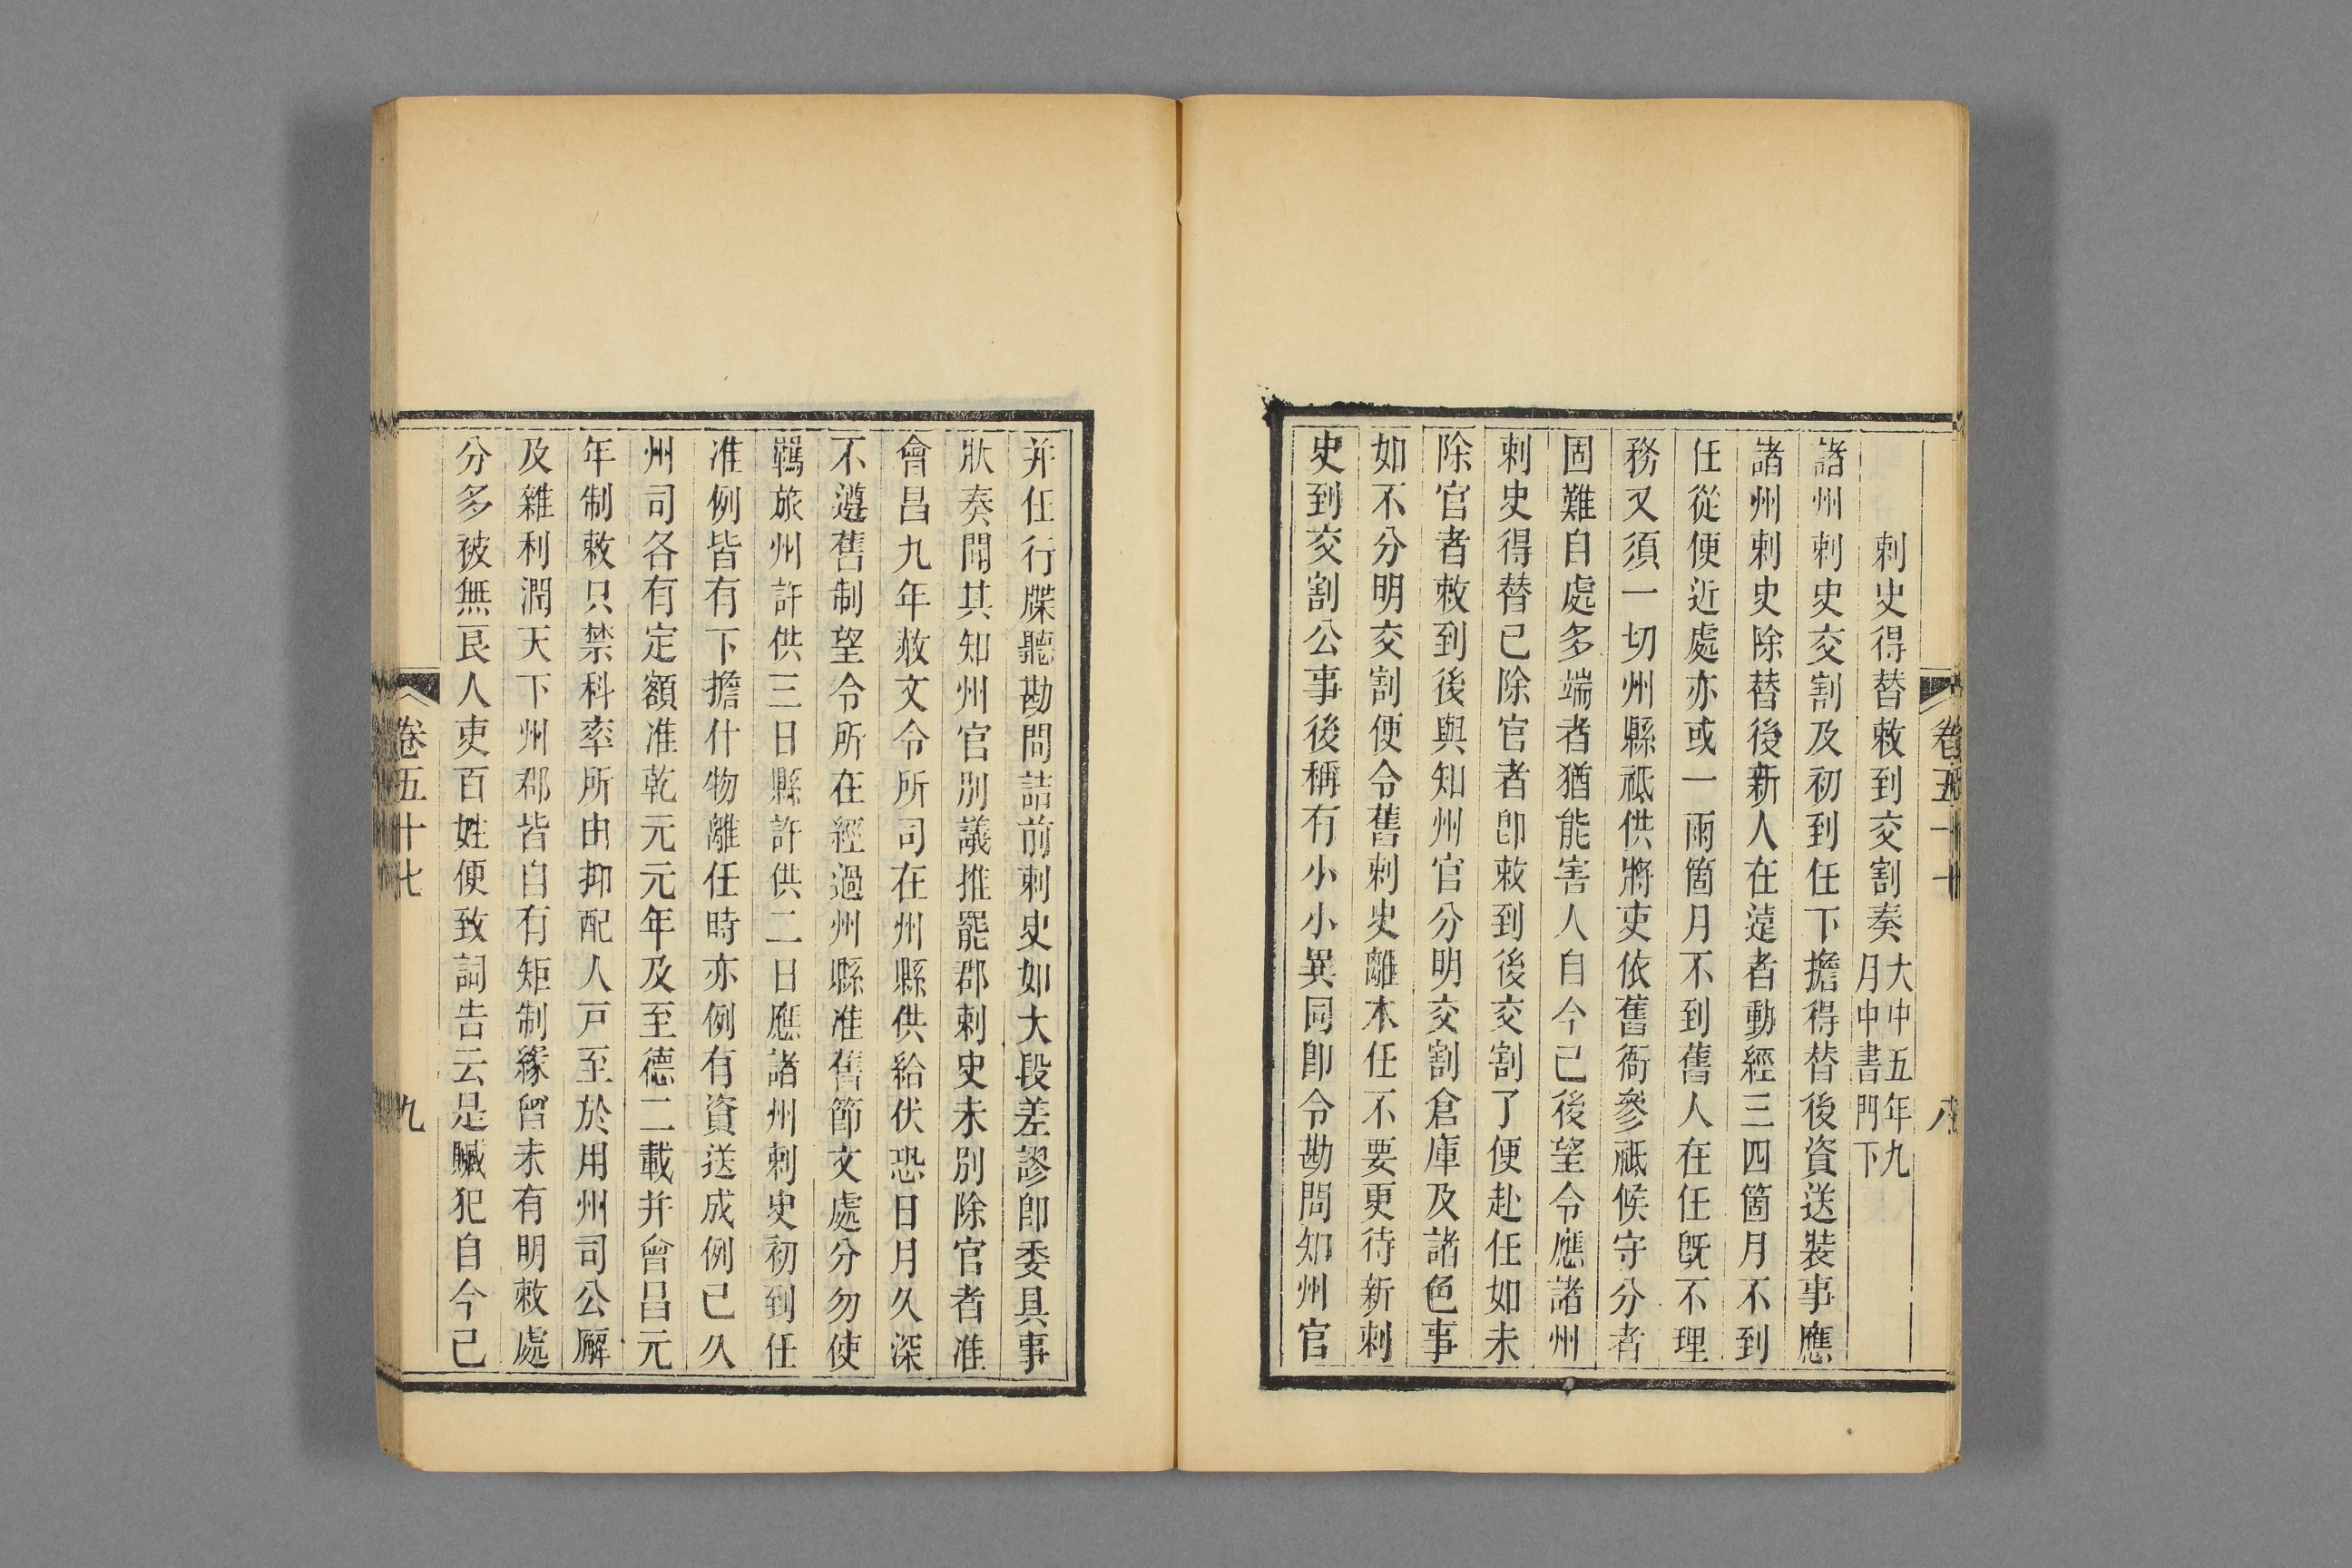 卷五十
八
刺史得替敕到交割奏大中五年九
月中書門下
諸州刺史交割及初到任下擔得替後資送裝事應
諸州刺史除替後新人在遠者動經三四箇月不到
任從便近處亦或一兩箇月不到舊人在任既不理
務又須一切州縣祗供將吏依舊衙參祗候守分者
固難自處多端者猶能害人自今已後望令應諸州
刺史得替已除官者卽敕到後交割了便赴任如未
除官者敕到後與知州官分明交割倉庫及諸色事
如不分明交割便令舊刺史離本任不要更待新刺
史到交割公事後稱有小小異同卽令勘問知州官
并任行牒聽勘問詰前刺史如大段差謬卽委具事
狀奏聞其知州官別議推罷郡刺史未別除官者准
會昌九年赦文令所司在州縣供給伏恐日月久深
不遵舊制望令所在經過州縣准舊節文處分勿使
羈旅州許供三日縣許供二日應諸州刺史初到任
准例皆有下擔什物離任時亦例有資送成例已久
州司各有定額准乾元元年及至德二載并會昌元
年制敕只禁科率所由抑配人戶至於用州司公廨
及雜利潤天下州郡皆自有矩制緣曾未有明敕處
分多被無良人吏百姓便致詞告云是贓犯自今已
卷五十七
九